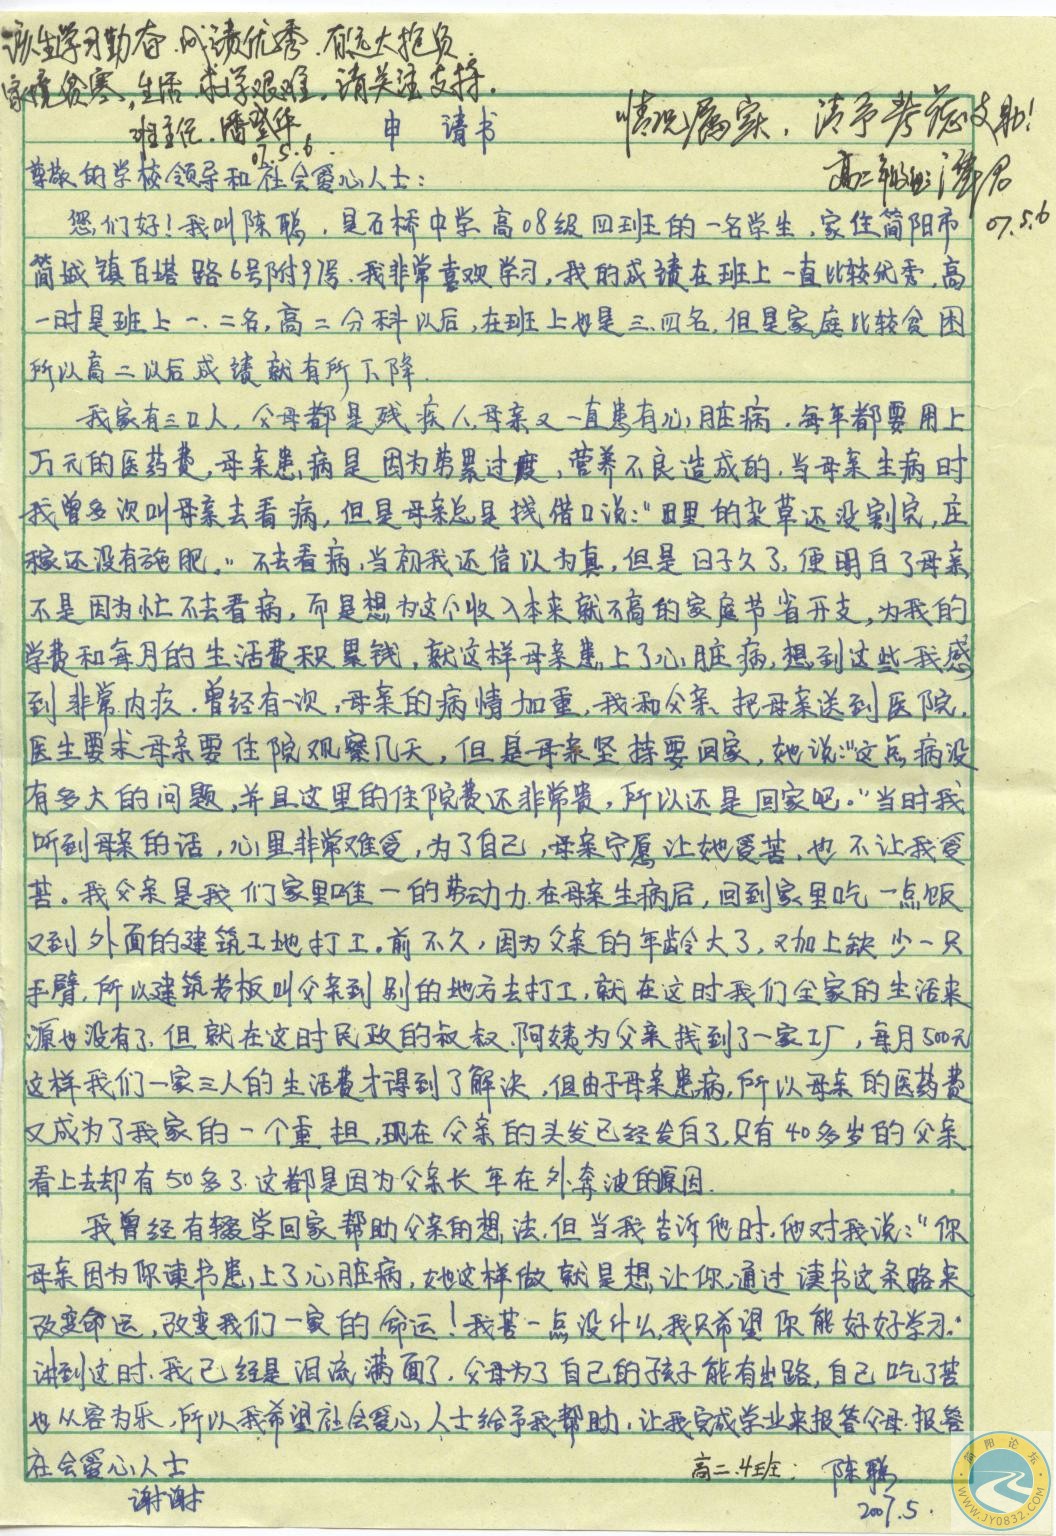 该生学习勤奋.成绩优秀.有远大抱负.
家境贫寒,生活.求学艰难,请关注支持.
班主任.潘登华
07.5.6.
情况属实,请予考虑支助!
高二年级组:
07.5.6
申 请书
尊敬的学校领导和社会爱心人士:
您们好!我叫陈聪,是石桥中学高08级四班的一名学生,家住简阳市
简城镇白塔路6号附97号.我非常喜欢学习,我的成绩在班上一直比较优秀,高
一时是班上一.二名,高二分科以后,在班上也是三.四名,但是家庭比较贫困
所以高二以后成绩就有所下降.
我家有三口人,父母都是残疾人,母亲又一直患有心脏病.每年都要用上
万元的医药费,母亲患病是因为劳累过度,营养不良造成的.当母亲生病时
我曾多次叫母亲去看病,但是母亲总是找借口说:“田里的杂草还没割完,庄
稼还没有施肥。”不去看病,当初我还信以为真,但是日子久了,便明白了母亲
不是因为忙不去看病,而是想为这个收入本来就不高的家庭节省开支,为我的
学费和每月的生活费积累钱,就这样母亲患上了心脏病,想到这些我感
到非常内疚.曾经有一次,母亲的病情加重,我和父亲把母亲送到医院,
医生要求母亲要住院观察几天,但是母亲坚持要回家,她说:“这点病没
有多大的问题,并且这里的住院费还非常贵,所以还是回家吧。”当时我
听到母亲的话,心里非常难受,为了自己,母亲宁愿让她受苦,也不让我受
苦。我父亲是我们家里唯一的劳动力.在母亲生病后,回到家里吃一点饭
又到外面的建筑工地打工。前不久,因为父亲的年龄大了,又加上缺少一只
手臂,所以建筑老板叫父亲到别的地方去打工,就在这时我们全家的生活来
源也没有了.但就在这时民政的叔叔.阿姨为父亲找到了一家工厂,每月500元
这样我们一家三人的生活费才得到了解决,但由于母亲患病,所以母亲的医药费
又成为了我家的一个重担,现在父亲的头发已经发白了,只有40多岁的父亲
看上去却有50多了.这都是因为父亲长年在外奔波的原因.
我曾经有辍学回家帮助父亲的想法,但当我告诉他时,他对我说:“你
母亲因为你读书患上了心脏病,她这样做就是想让你通过读书这条路来
改变命运,改变我们一家的命运!我苦一点没什么,我只希望你能好好学习.”
讲到这时.我已经是泪流满面了,父母为了自己的孩子能有出路,自己吃了苦
也从容为乐,所以我希望社会爱心人士给予我帮助.让我完成学业来报答父母.报答
社会爱心人士
谢谢
高二.4班: 陈聪
2007.5.
简阳论坛
WWW.JY0832.COM